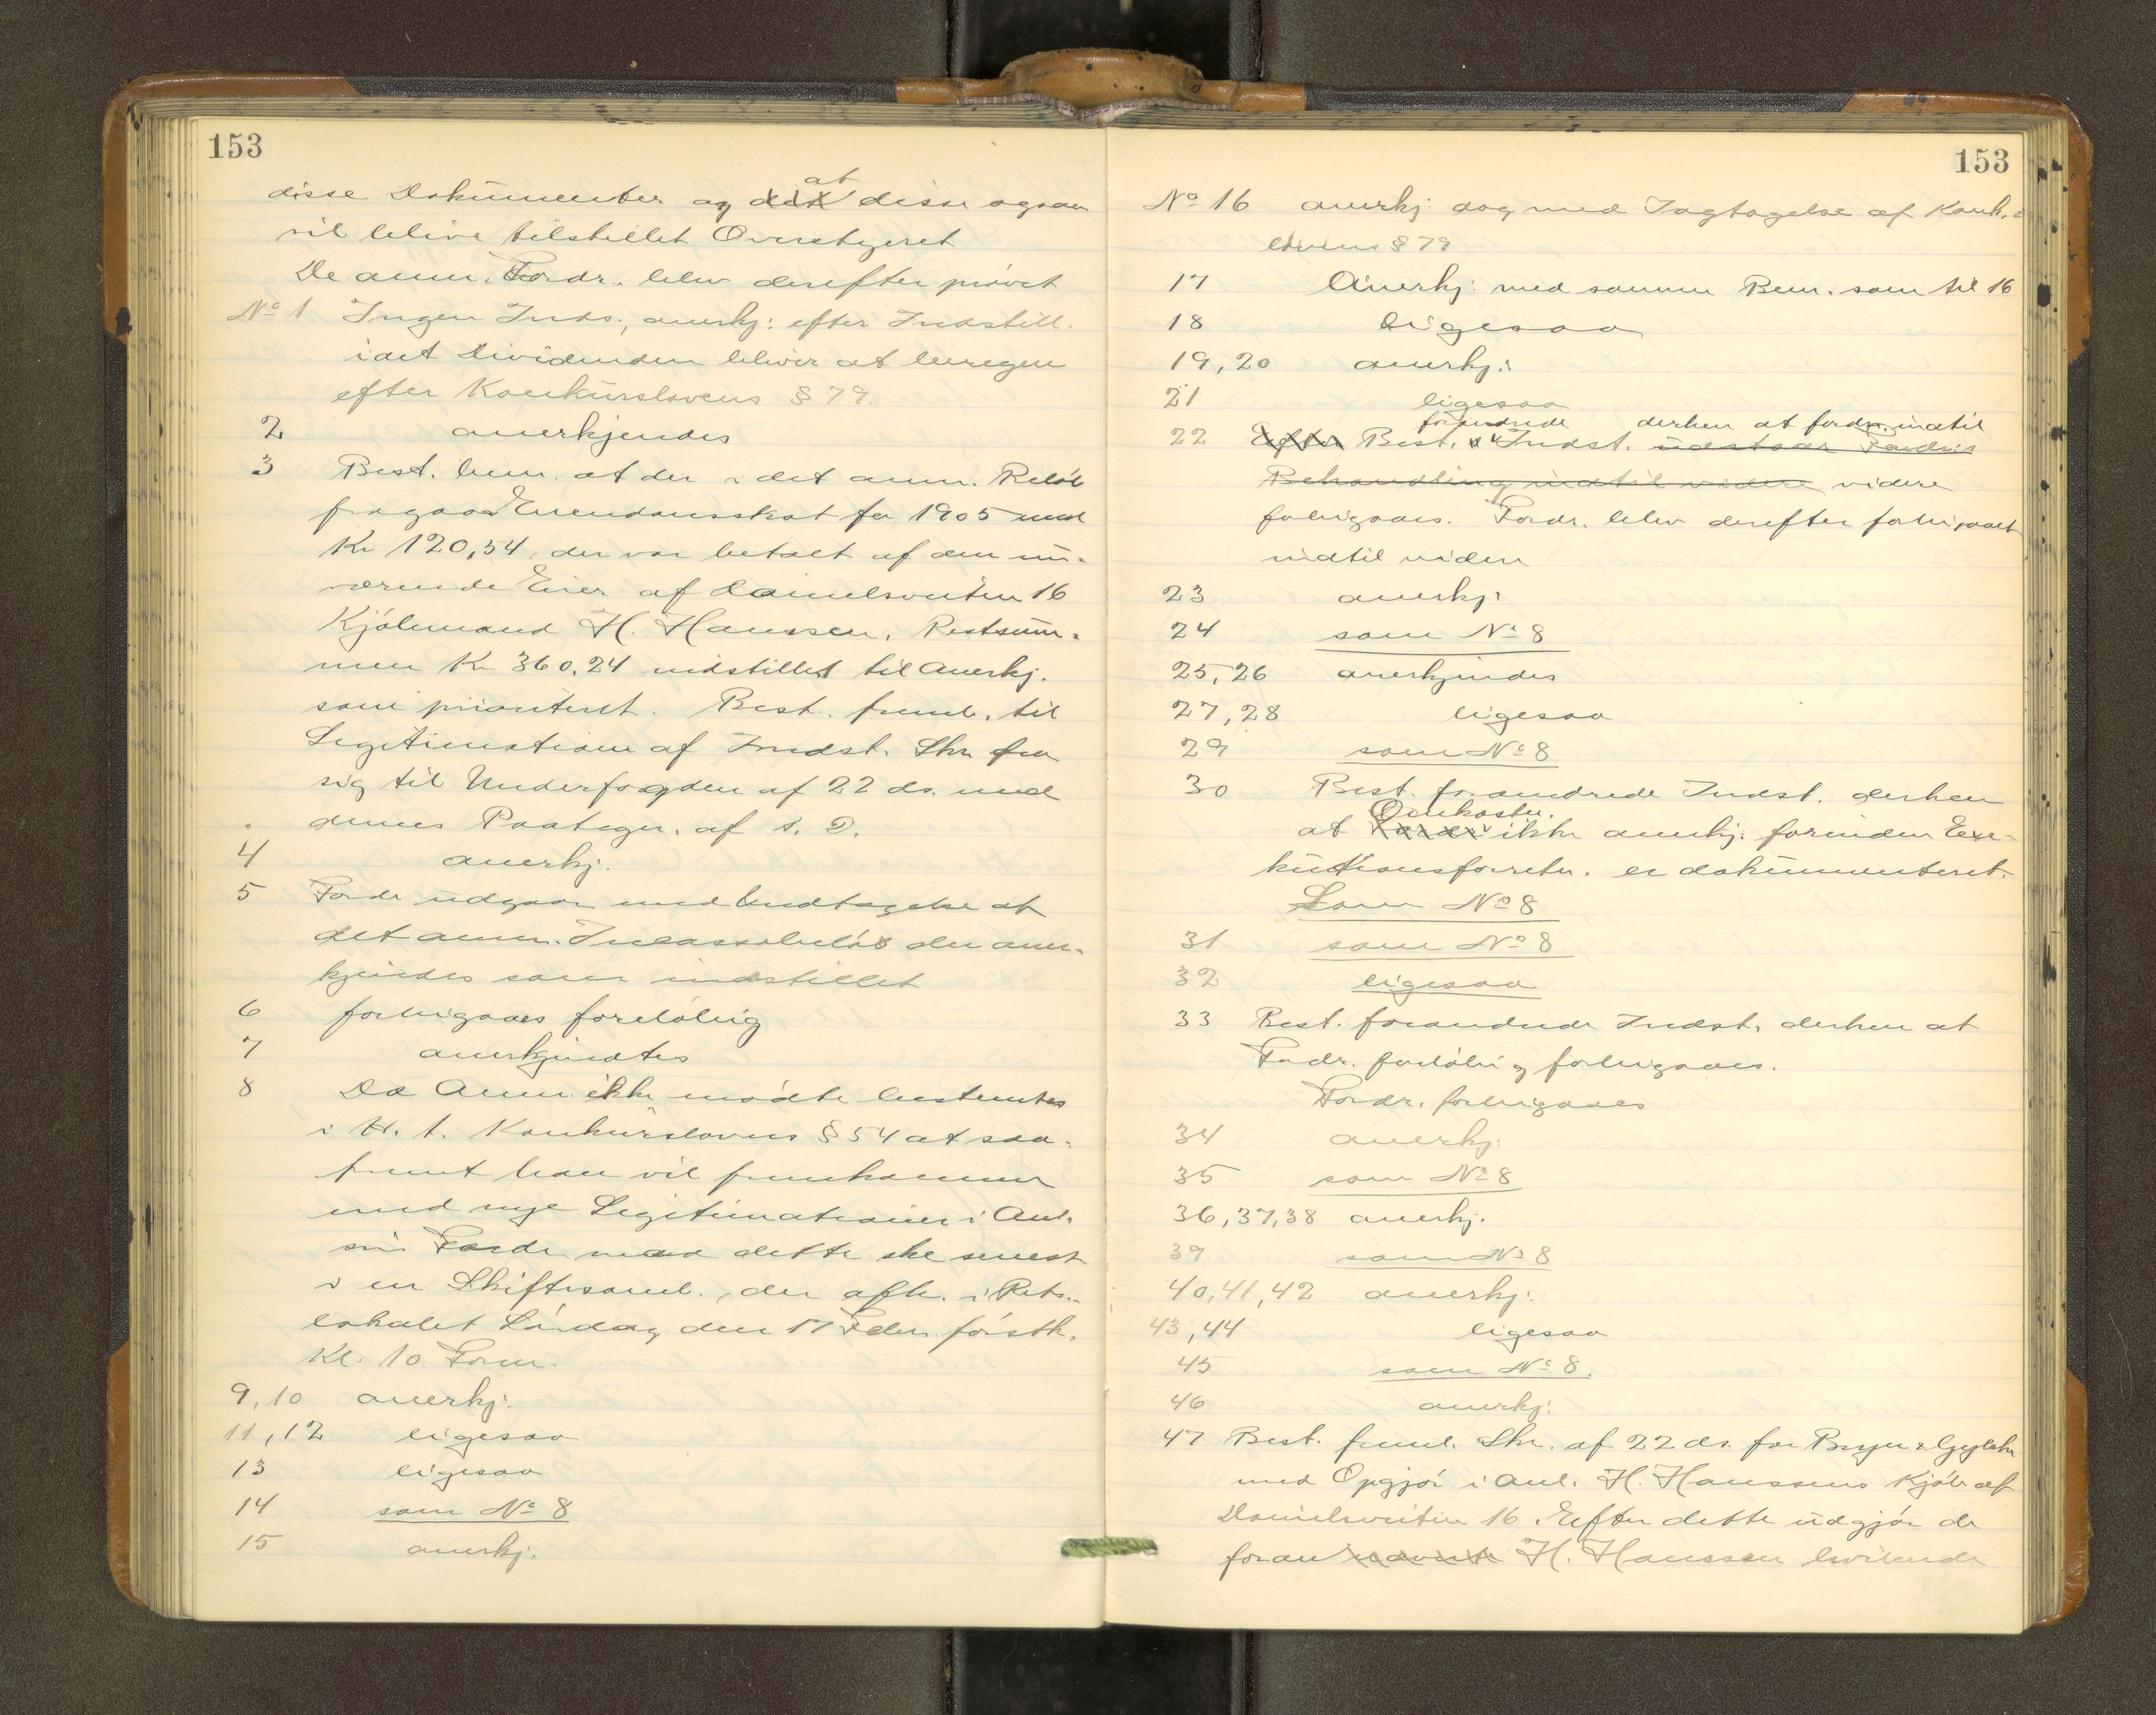 153
disse Dokumenter og at disse ogsaa
vil blive tilstillet Overstyret
De anm. Fordr. blev derefter prøvet
No 1 Ingen Inds., anerkj: efter Indstill.
idet Dividenden bliver at beregne
efter Konkurslovens § 79.
2 anerkjendes
3 Best. bem. at der i det anm. Beløb
fragaar Eiendomsskat for 1905 med
Kr 120,54, der var betalt af den nu-
værende Eier af Damelsveiten 16
Kjøbmand H. Hanssen. Restsum-
men Kr 360.24 indstilles til Anerkj.
som prioriteret. Best. freml. til
Legitimation af Indst. Skr. fra
sig til Underfogden af 22 ds. med
dennes Paategn. af s. D.
4 anerkj.
5 Fordr udgaar med Undtagelse af
det anm. Incassobeløb der aner-
kjendes som indstillet
6 forbigaaes foreløbig
7 anerkjendtes
8 Da Anm ikke mødte bestemtes
i H. t. Konkurslovens § 54 at saa-
fremt han vil fremkomme
med nye Legitimationer i Anl.
sin Fordr maa dette ske senest
i en Skiftesaml., der afh. i Rets-
lokalet Lørdag den 17 Febr. førstk.
Kl. 10 Form.
9, 10 anerkj:
11, 12 ligesaa
13 ligesaa
14 som No 8
15 anerkj.
153
No 16 anerkj. dog med Iagtagelse af Konk.-
lovens § 79
17 Anerkj: med samme Bem. som til 16
18 ligesaa
19, 20 anerkj:
21 ligesaa
forandrede derhen at fordr. indtil
22 Efter Best. s Indst. udstaar Fordr's
Behandling indtil videre videre
forbigaaes. Fordr. blev derefter forbigaaet
indtil videre
23 anerkj:
24 som No 8
25, 26 anerkjendes
27, 28 ligesaa
29 som No 8
30 Best. forandrede Indst. derhen
Omkostn.
at Fordr ikke anerkj. forinden Exe-
kutionsforretn. er dokumenteret.
Som No 8
31 som No 8
32 ligesaa
33 Best. forandrede Indst. derhen at
Fordr. foreløbig forbigaaes.
Fordr. forbigaaes
34 anerkj:
35 som No 8
36, 37, 38 anerkj.
39 som No 8
40, 41, 42 anerkj:
43, 44 ligesaa
45 som No 8.
46 anerkj:
47 Best. freml. Skr. af 22 ds. fra
med Opgjør i Anl. H. Hanssens Kjøb af
Damelsveiten 16. Efter dette udgjør de
foran nævnte H. Hanssen hvilende